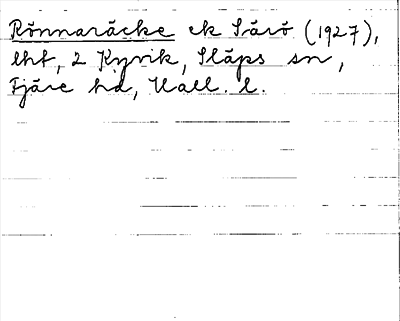 Rönnaräcke ek Särö (1927),
lht, 2 Kyvik, Släps sn,
Fjäre hd, Hall. l.